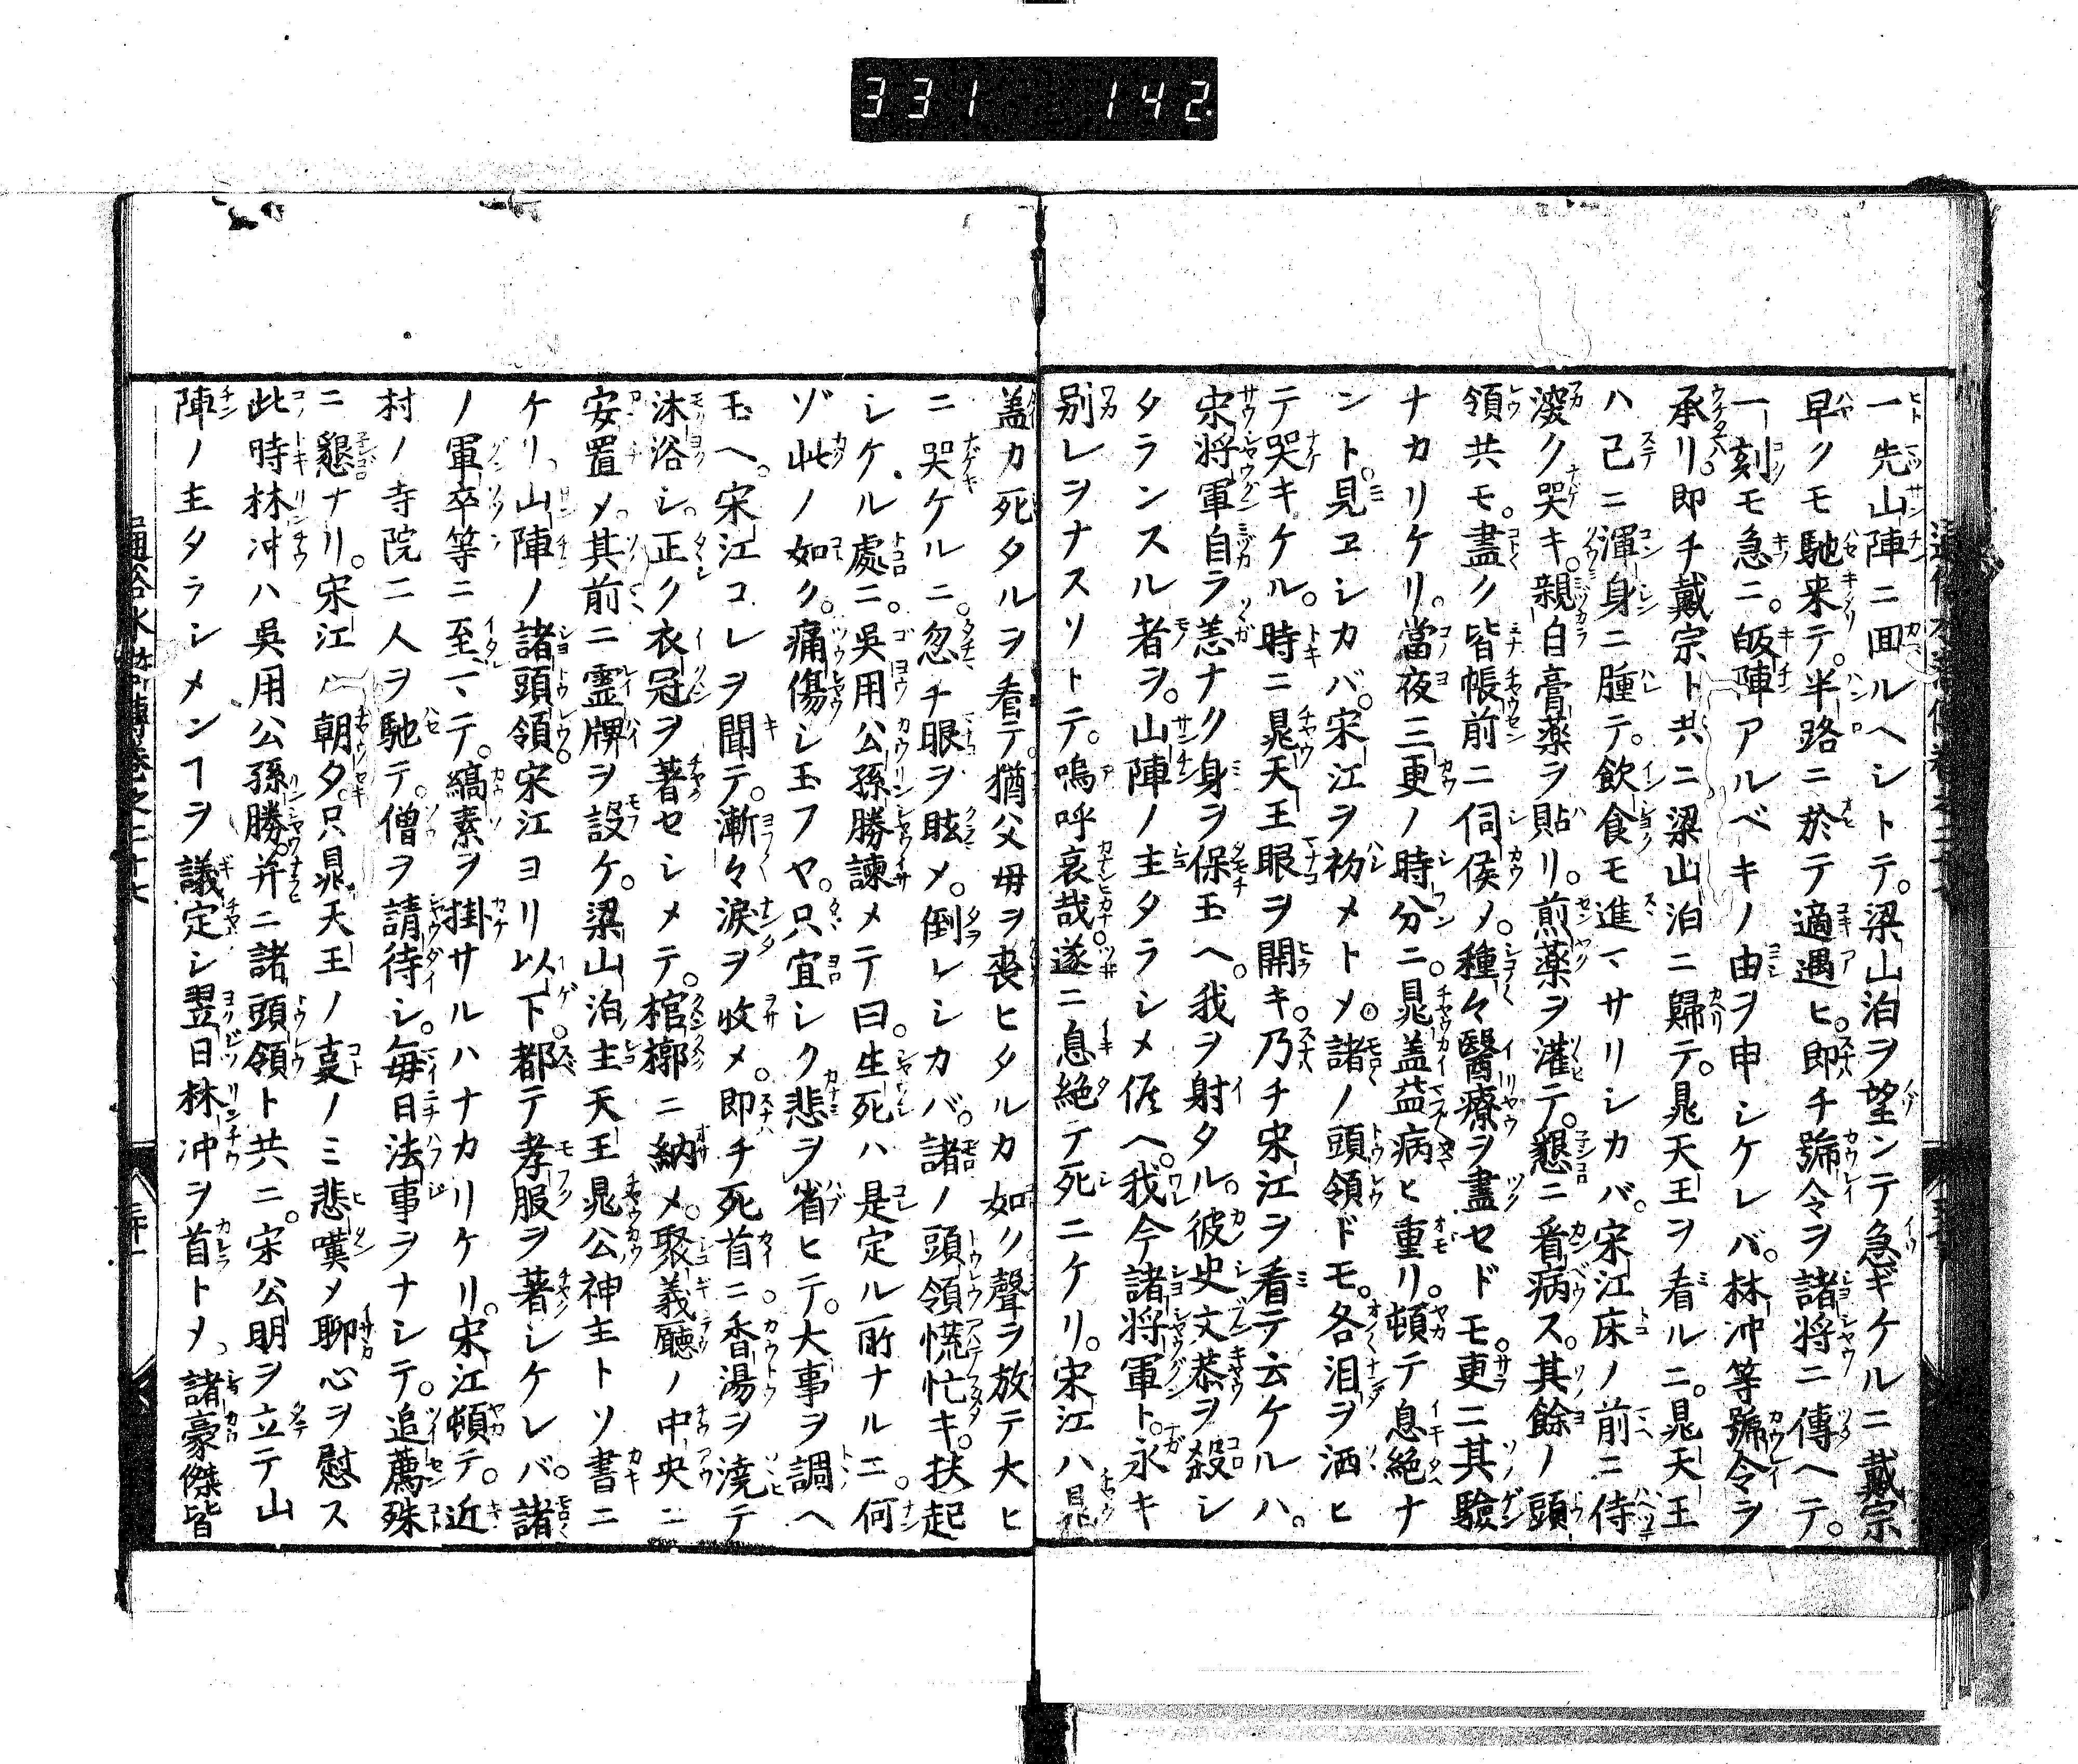 331 142.
一先山陣ニ回ルヘシトテ。梁山泊ヲ望ンテ急ギケルニ戴宗
早クモ馳来テ。半路ニ於テ適遇ヒ。即チ號令ヲ諸将ニ傳ヘテ。
一刻モ急ニ。皈陣アルベキノ由ヲ申シケレバ。林冲等號令ヲ
承リ。即チ戴宗ト共ニ梁山泊ニ歸テ。晁天王ヲ看ルニ。晁天王
ハ已ニ渾身ニ腫テ。飲食モ進マサリシカバ。宋江床ノ前ニ侍
深ク哭キ。親自膏薬ヲ貼リ。煎薬ヲ灌テ。懇ニ看病ス。其餘ノ頭
領共モ。盡ク皆帳前ニ伺候メ。種々醫療ヲ盡セドモ。更ニ其驗
ナカリケリ。當夜三更ノ時分ニ。晁盖益病ヒ重リ。頓テ息絶ナ
ント。見ヱシカバ。宋江ヲ初メトメ。諸ノ頭領ドモ。各泪ヲ洒ヒ
テ哭キケル。時ニ晁天王眼ヲ開キ。乃チ宋江ヲ看テ云ケルハ。
宋将軍自ラ恙ナク身ヲ保玉ヘ。我ヲ射タル。彼史文恭ヲ殺シ
タランスル者ヲ。山陣ノ主タラシメ候ヘ。我今諸将軍ト。永キ
別レヲナスソトテ。嗚呼哀哉遂ニ息絶テ死ニケリ。宋江ハ晁
盖カ死タルヲ看テ。猶父母ヲ喪ヒタルカ如ク聲ヲ放テ大ヒ
ニ哭ケルニ。忽チ眼ヲ眩メ。倒レシカバ。諸ノ頭領慌忙キ。扶起
シケル處ニ。吳用公孫勝諌メテ曰。生死ハ是定ル所ナルニ。何
ゾ此ノ如ク。痛傷シ玉フヤ。只宜シク悲ヲ省ヒテ。大事ヲ調ヘ
玉ヘ。宋江コレヲ聞テ。漸々涙ヲ收メ。即チ死首ニ香湯ヲ澆テ
沐浴シ。正ク衣冠ヲ著セシメテ。棺槨ニ納メ。聚義廳ノ中央ニ
安置メ。其前ニ霊牌ヲ設ケ。梁山泊主天王晁公神主トソ書ニ
ケリ。山陣ノ諸頭領。宋江ヨリ以下。都テ孝服ヲ著シケレバ。諸
ノ軍卒等ニ至マテ。縞素ヲ掛サルハナカリケリ。宋江頓テ。近
村ノ寺院ニ人ヲ馳テ。僧ヲ請待シ。毎日法事ヲナシテ。追薦殊
ニ懇ナリ。宋江ハ朝夕。只晁天王ノ亊ノミ悲嘆メ聊心ヲ慰ス
此時林冲ハ吳用公孫勝并ニ諸頭領ト共ニ。宋公明ヲ立テ山
陣ノ主タラシメンヿヲ議定シ翌日林冲ヲ首トメ、諸豪傑皆
通俗水滸傳巻之二十七